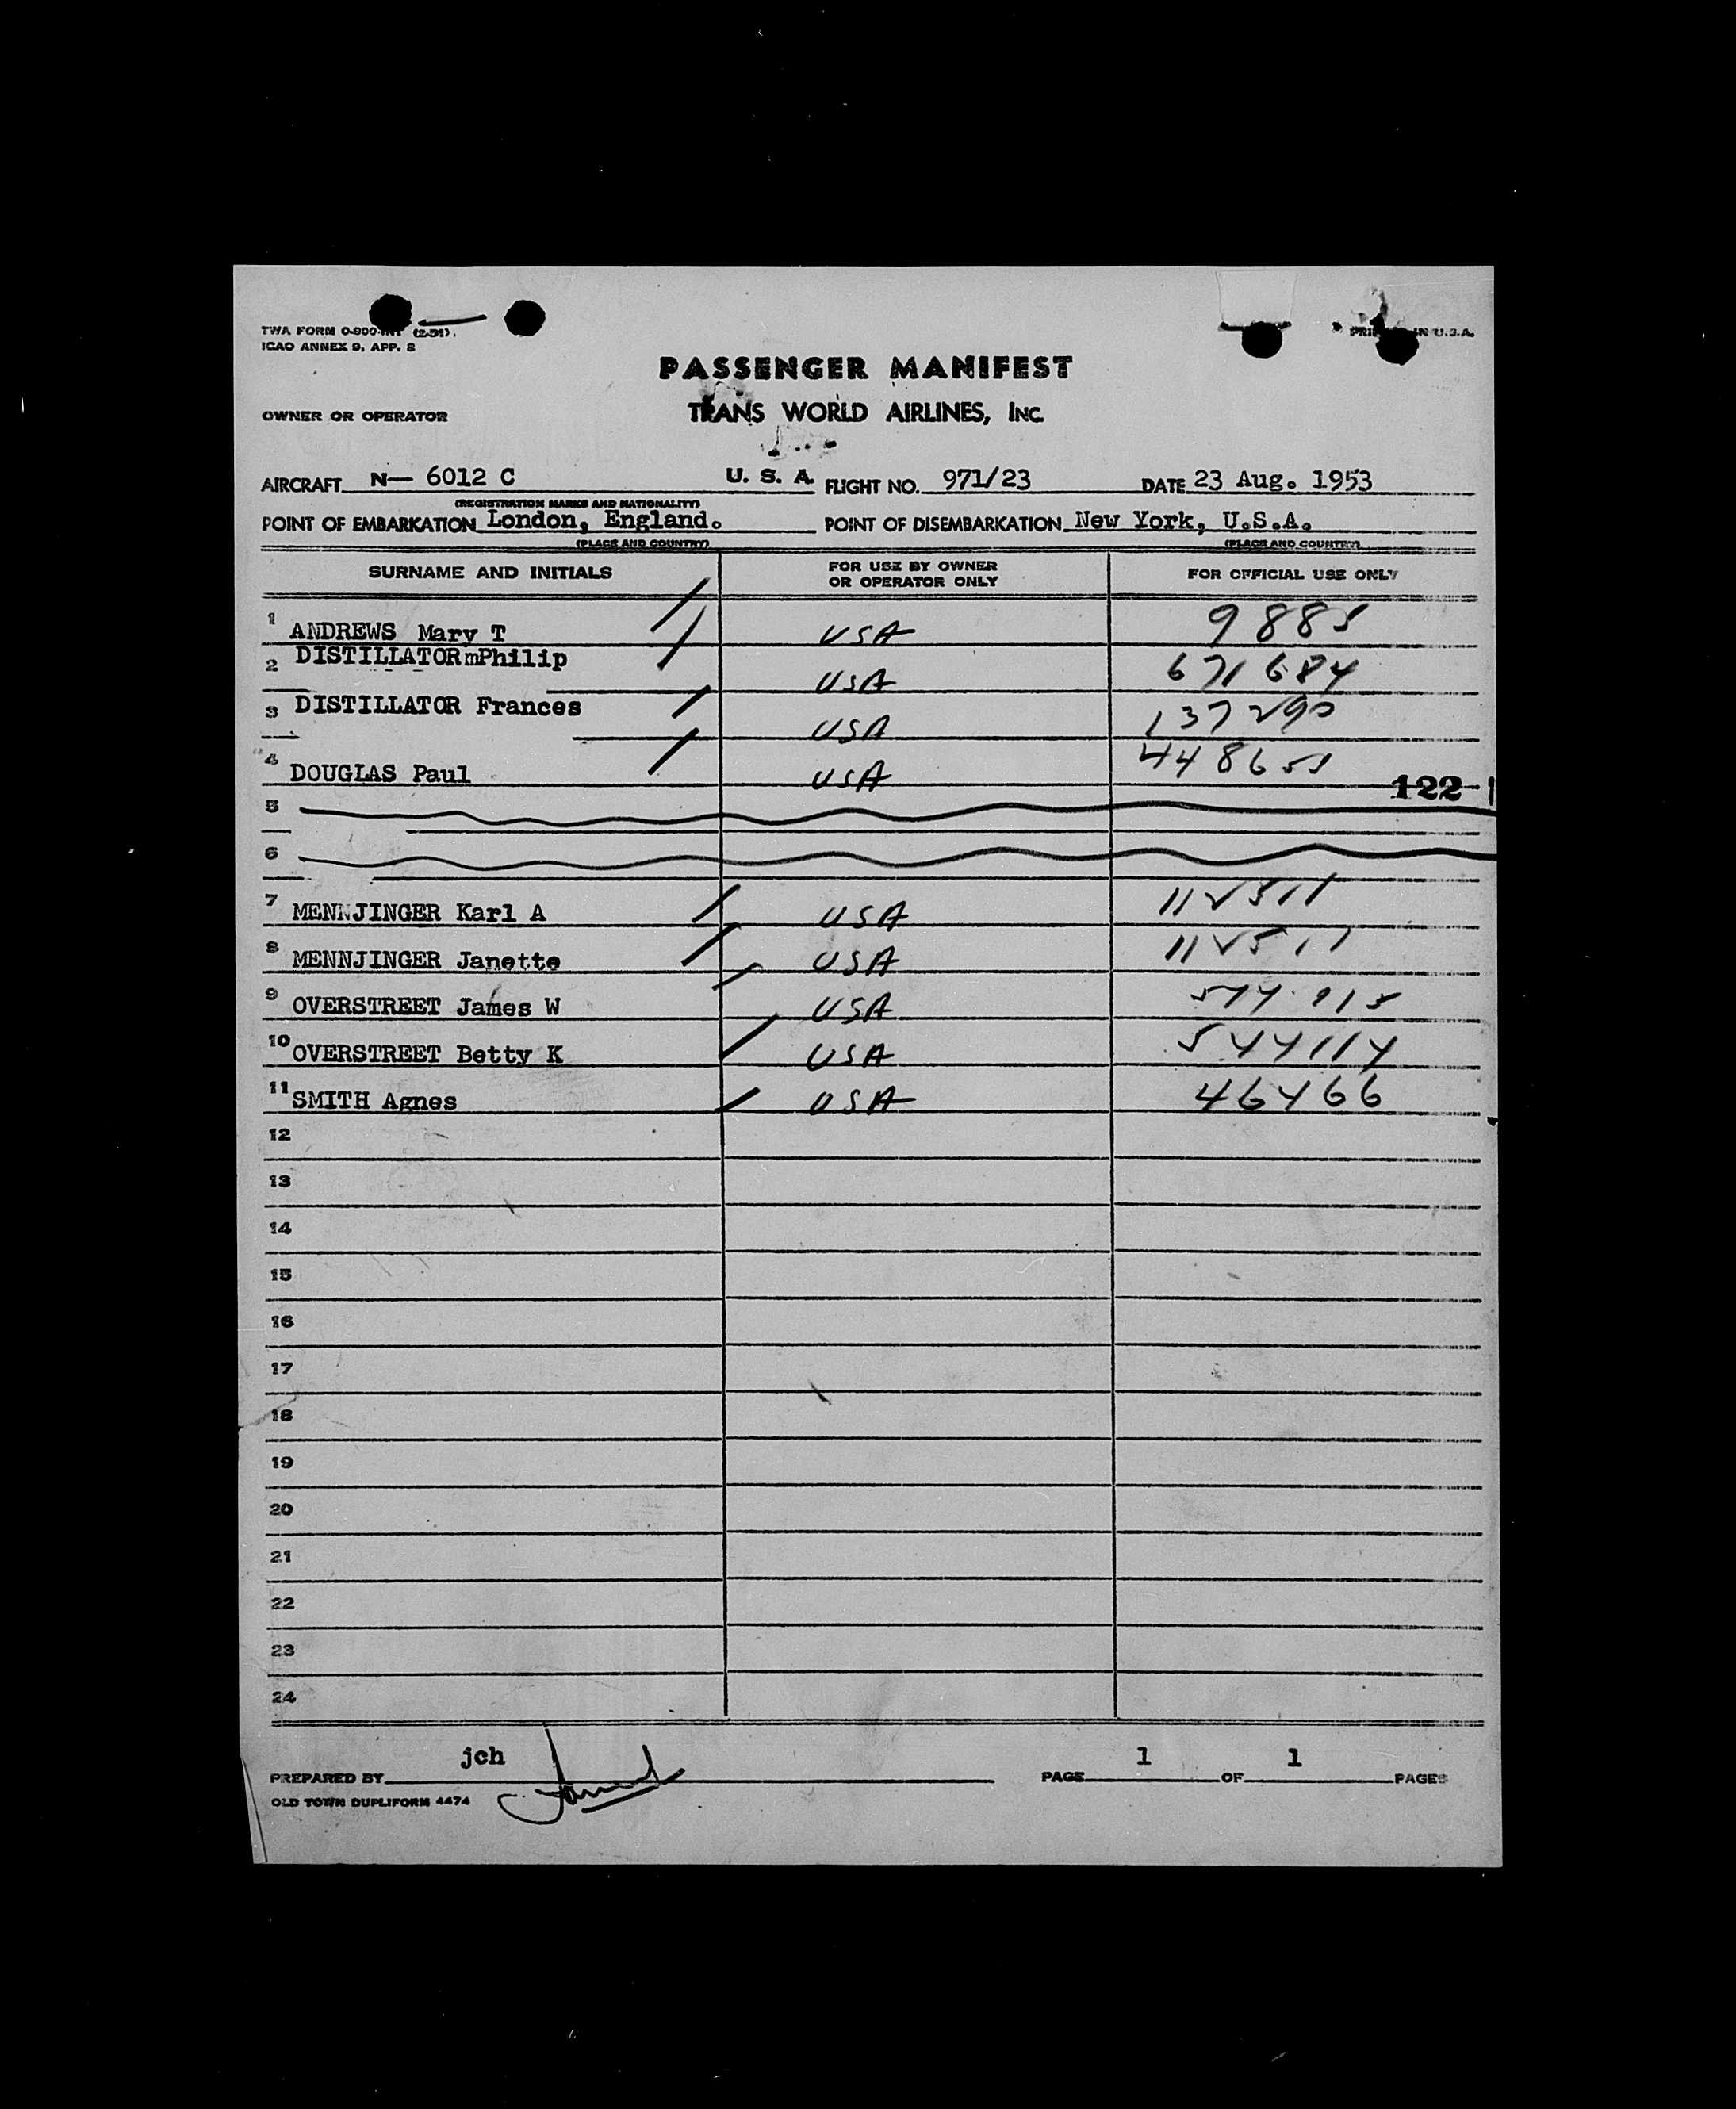 TWA FORM 0-900-INT (2-51).
ICAO ANNEX 9, APP. 2
PRINTED IN U.S.A.
PASSENGER MANIFEST
OWNER OR OPERATOR TRANS WORLD AIRLINES, INC.
AIRCRAFT N— 6012 C U. S. A. FLIGHT NO. 971/23 DATE 23 Aug. 1953
(REGISTRATION MARKS AND NATIONALITY)
POINT OF EMBARKATION London, England. POINT OF DISEMBARKATION New York, U.S.A.
(PLACE AND COUNTRY) (PLACE AND COUNTRY)
SURNAME AND INITIALS FOR USE BY OWNER OR OPERATOR ONLY FOR OFFICIAL USE ONLY
1 ANDREWS Mary T USA 9885
2 DISTILLATORmPhilip USA 671684
3 DISTILLATOR Frances USA 137290
4 DOUGLAS Paul USA 448655
122
5
6
7 MENNJINGER Karl A USA 112511
8 MENNJINGER Janette USA 112511
9 OVERSTREET James W USA
10 OVERSTREET Betty K USA 544114
11 SMITH Agnes USA 46466
12
13
14
15
16
17
18
19
20
21
22
23
24
PREPARED BY jch PAGE 1 OF 1 PAGES
OLD TOWN DUPLIFORM 4474